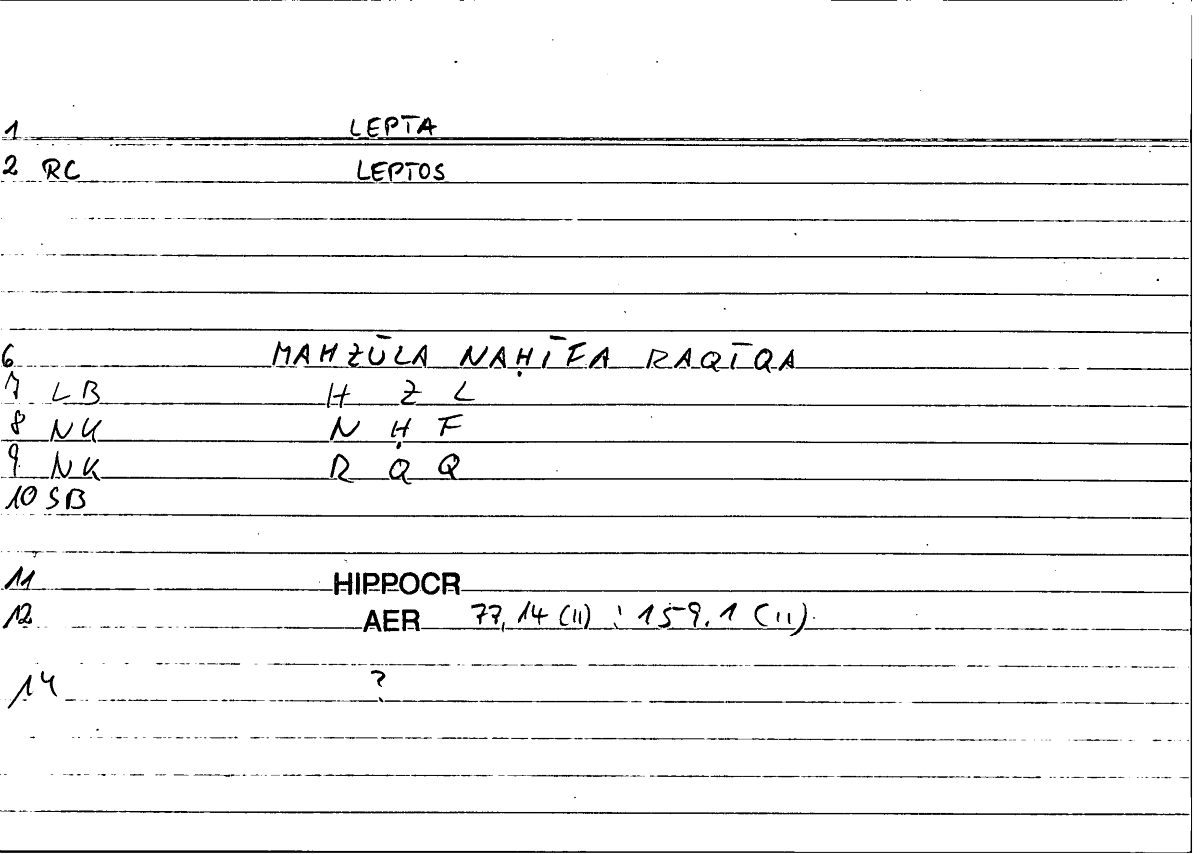 1 LEPTA
2 RC LEPTOS
6 MAHZŪLA NAḤĪFA RAQĪQA
7 LB H Z L
8 NK N Ḥ F
9 NK R Q Q
10 SB
11 HIPPOCR
12 AER 77,14 (11) : 159.1 (11)
14 ?